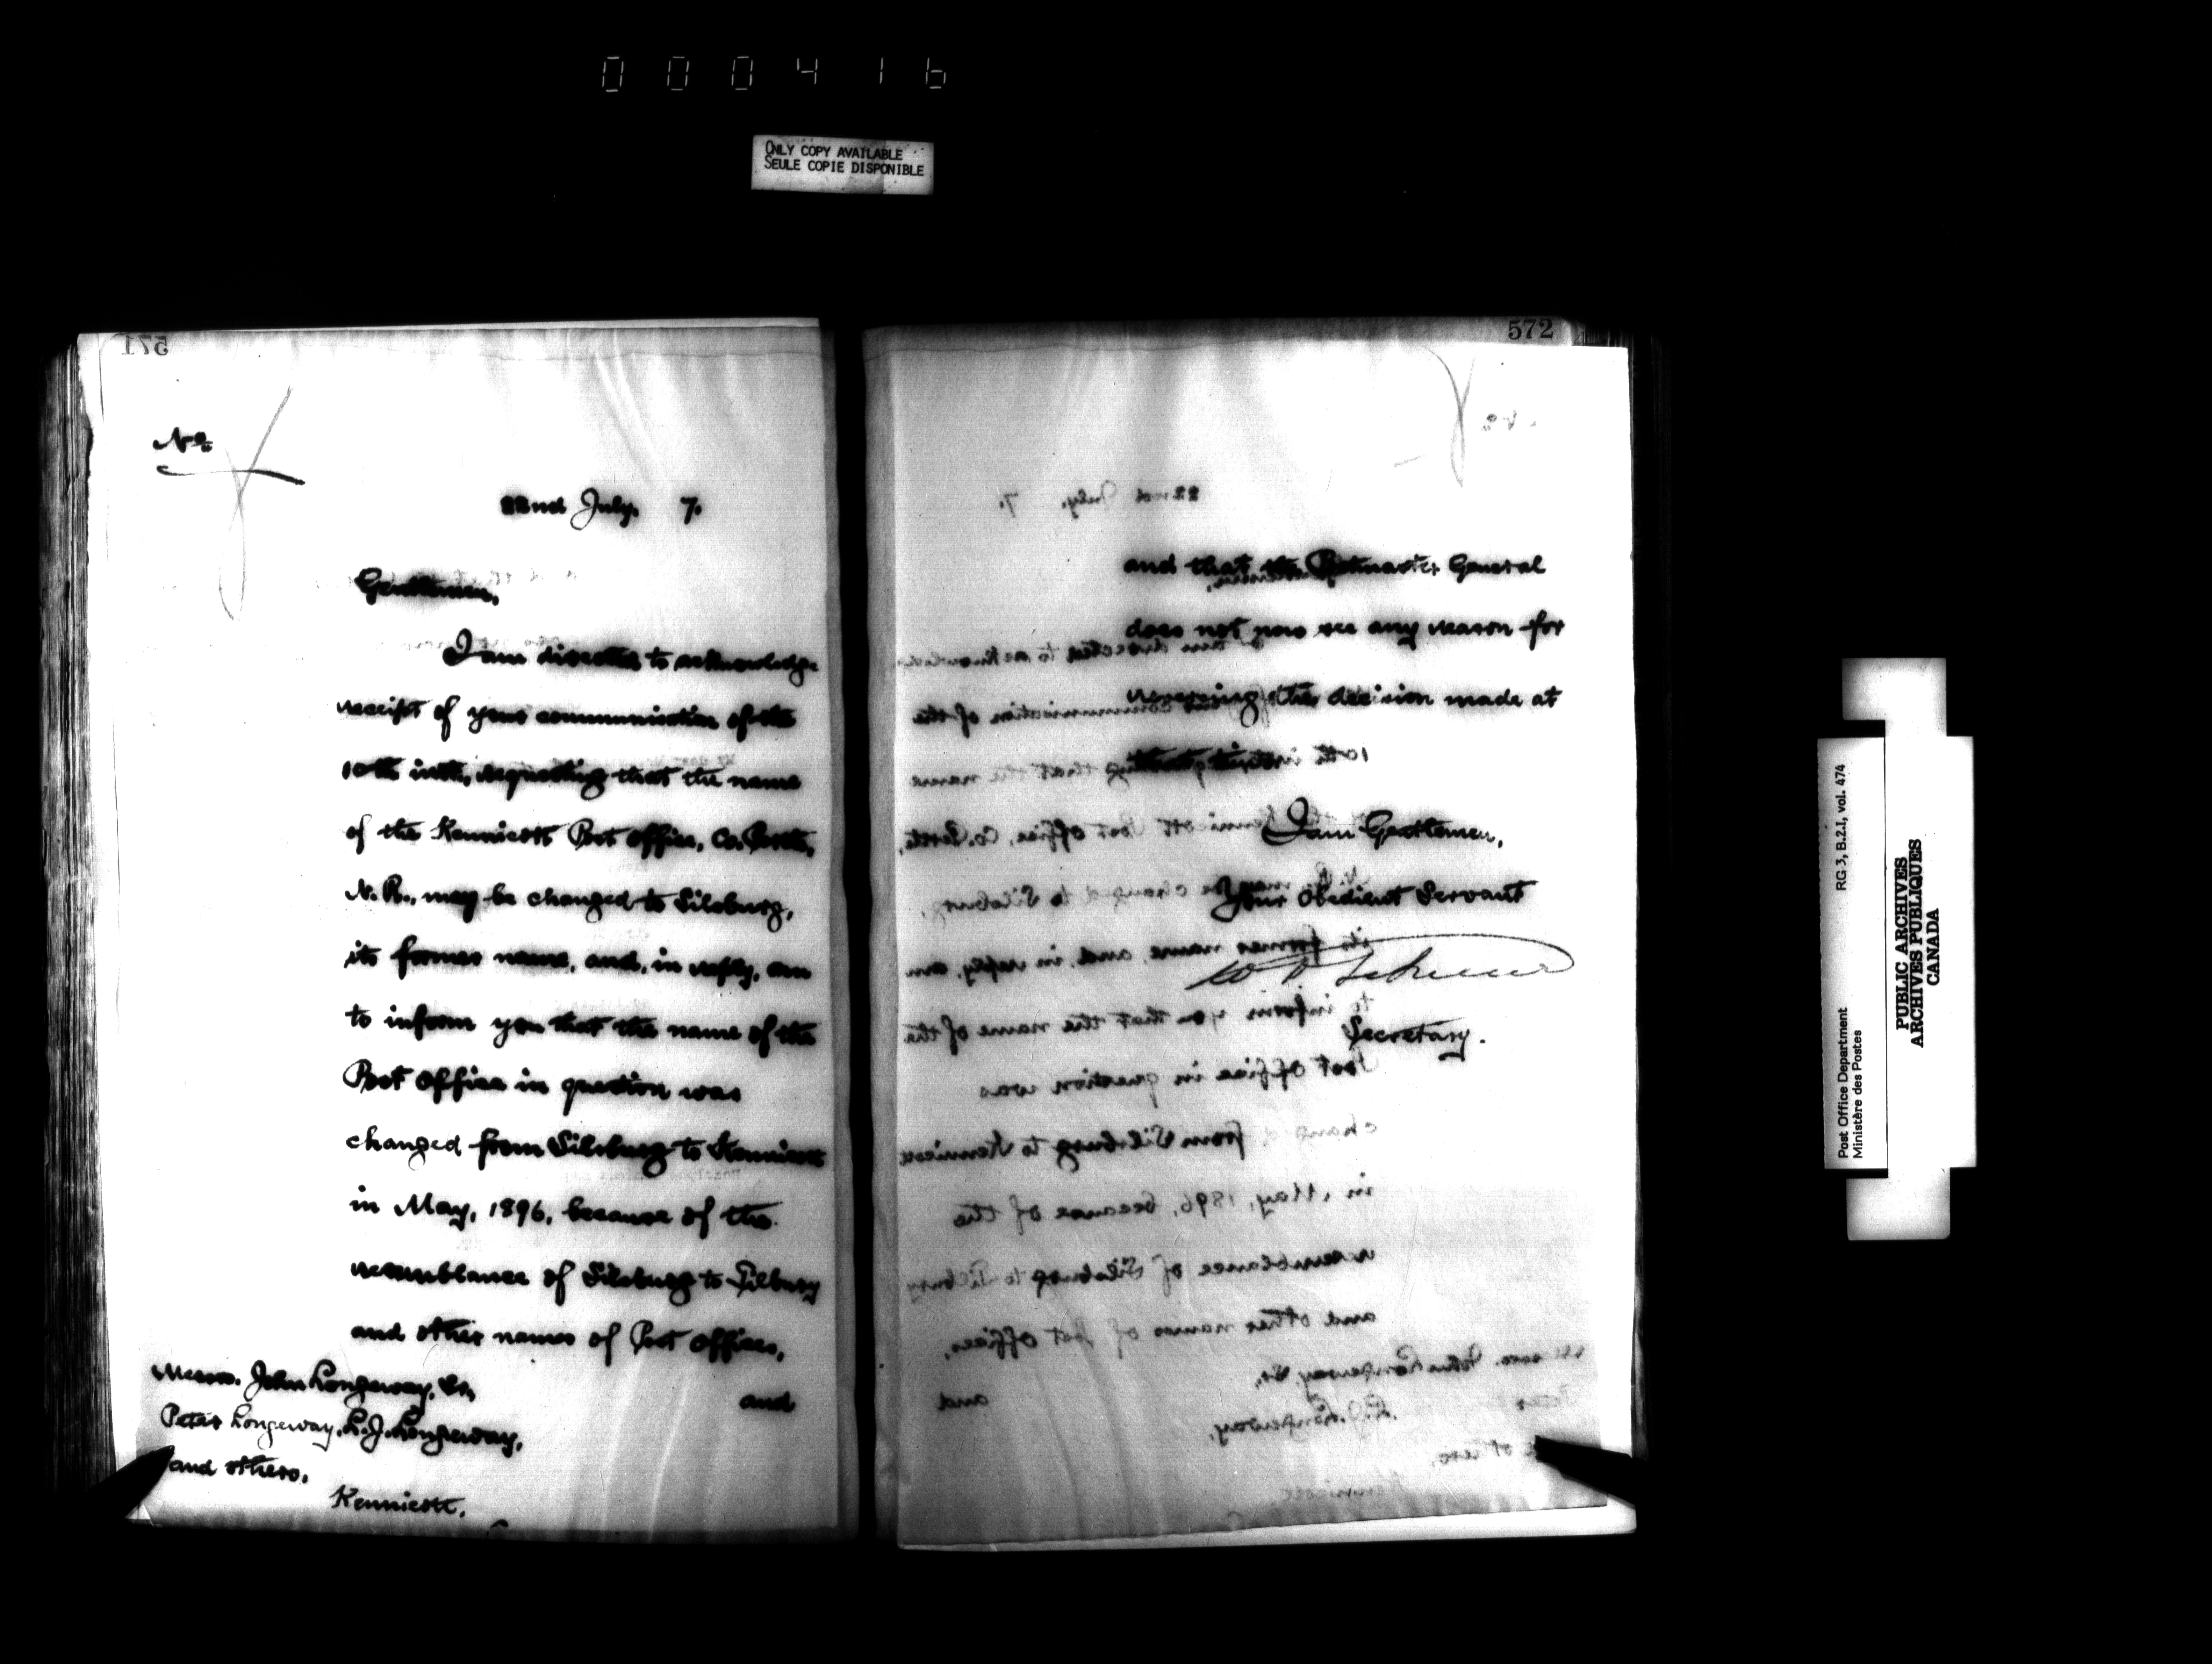 000416
ONLY COPY AVAILABLE
SEULE COPIE DISPONIBLE
571
No
22nd July. 7.
Gentlemen,
I am directed to acknowledge
receipt of your communication of the
10th inst., requesting that the name
of the Kennicott Post Office, Co. Perth,
N. R., may be changed to Silsburg,
its former name, and, in reply, am
to inform you that the name of the
Post Office in question was
changed from Silsburg to Kennicott
in May, 1896, because of the
resemblance of Silsburg to Tilbury
and other names of Post Offices,
and
Messrs. John Longeway, Sr.,
Peter Longeway, L. J. Longeway,
and others,
Kennicott.
572
and that the Postmaster General
does not now see any reason for
reversing the decision made at
I am Gentlemen,
Your Obedient Servant
Secretary.
Post Office Department
Ministère des Postes
RG 3, B.2.1, vol. 474
PUBLIC ARCHIVES
ARCHIVES PUBLIQUES
CANADA